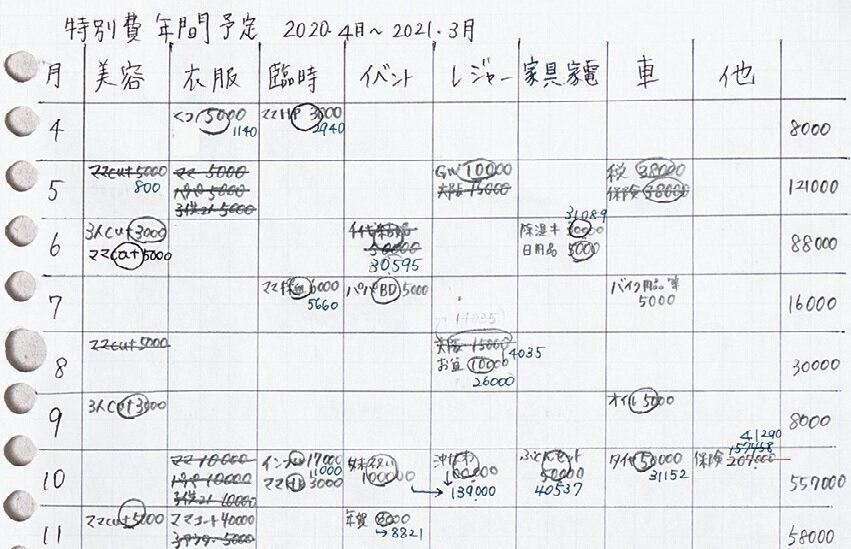 特別費 年間予定 2020.4月〜2021.3月
月 美容 衣服 臨時 イベント レジャー 家具家電 車 他
4 くつ 5000 ママHP 3000 8000
1140 2940
5 ママcut 5000 ママ 5000 GW 10000 税 38000 121000
800 パパ 5000 大阪 15000 保険 38000
子供2人 5000
31089
6 3人cut 3000 除湿キ 30000 88000
ママcut 5000 50000 日用品 5000
30595
7 6000 パパBD 5000 バイク用品等 16000
5660 5000
14035
8 ママcut 5000 大阪 15000 14035 30000
お盆 10000
26000
9 3人cut 3000 オイル 5000 8000
41290
157458
10 ママ 10000 インフル 17000 沖なわ ふとんセット タイヤ 50000 保険 207000 557000
パパ 10000 11000 100000 100000 50000 31152
子供2人 10000 ママ 3000 → 139000 40537
11 ママcut 5000 ママコート 40000 年賀 8000 58000
5000 →8821